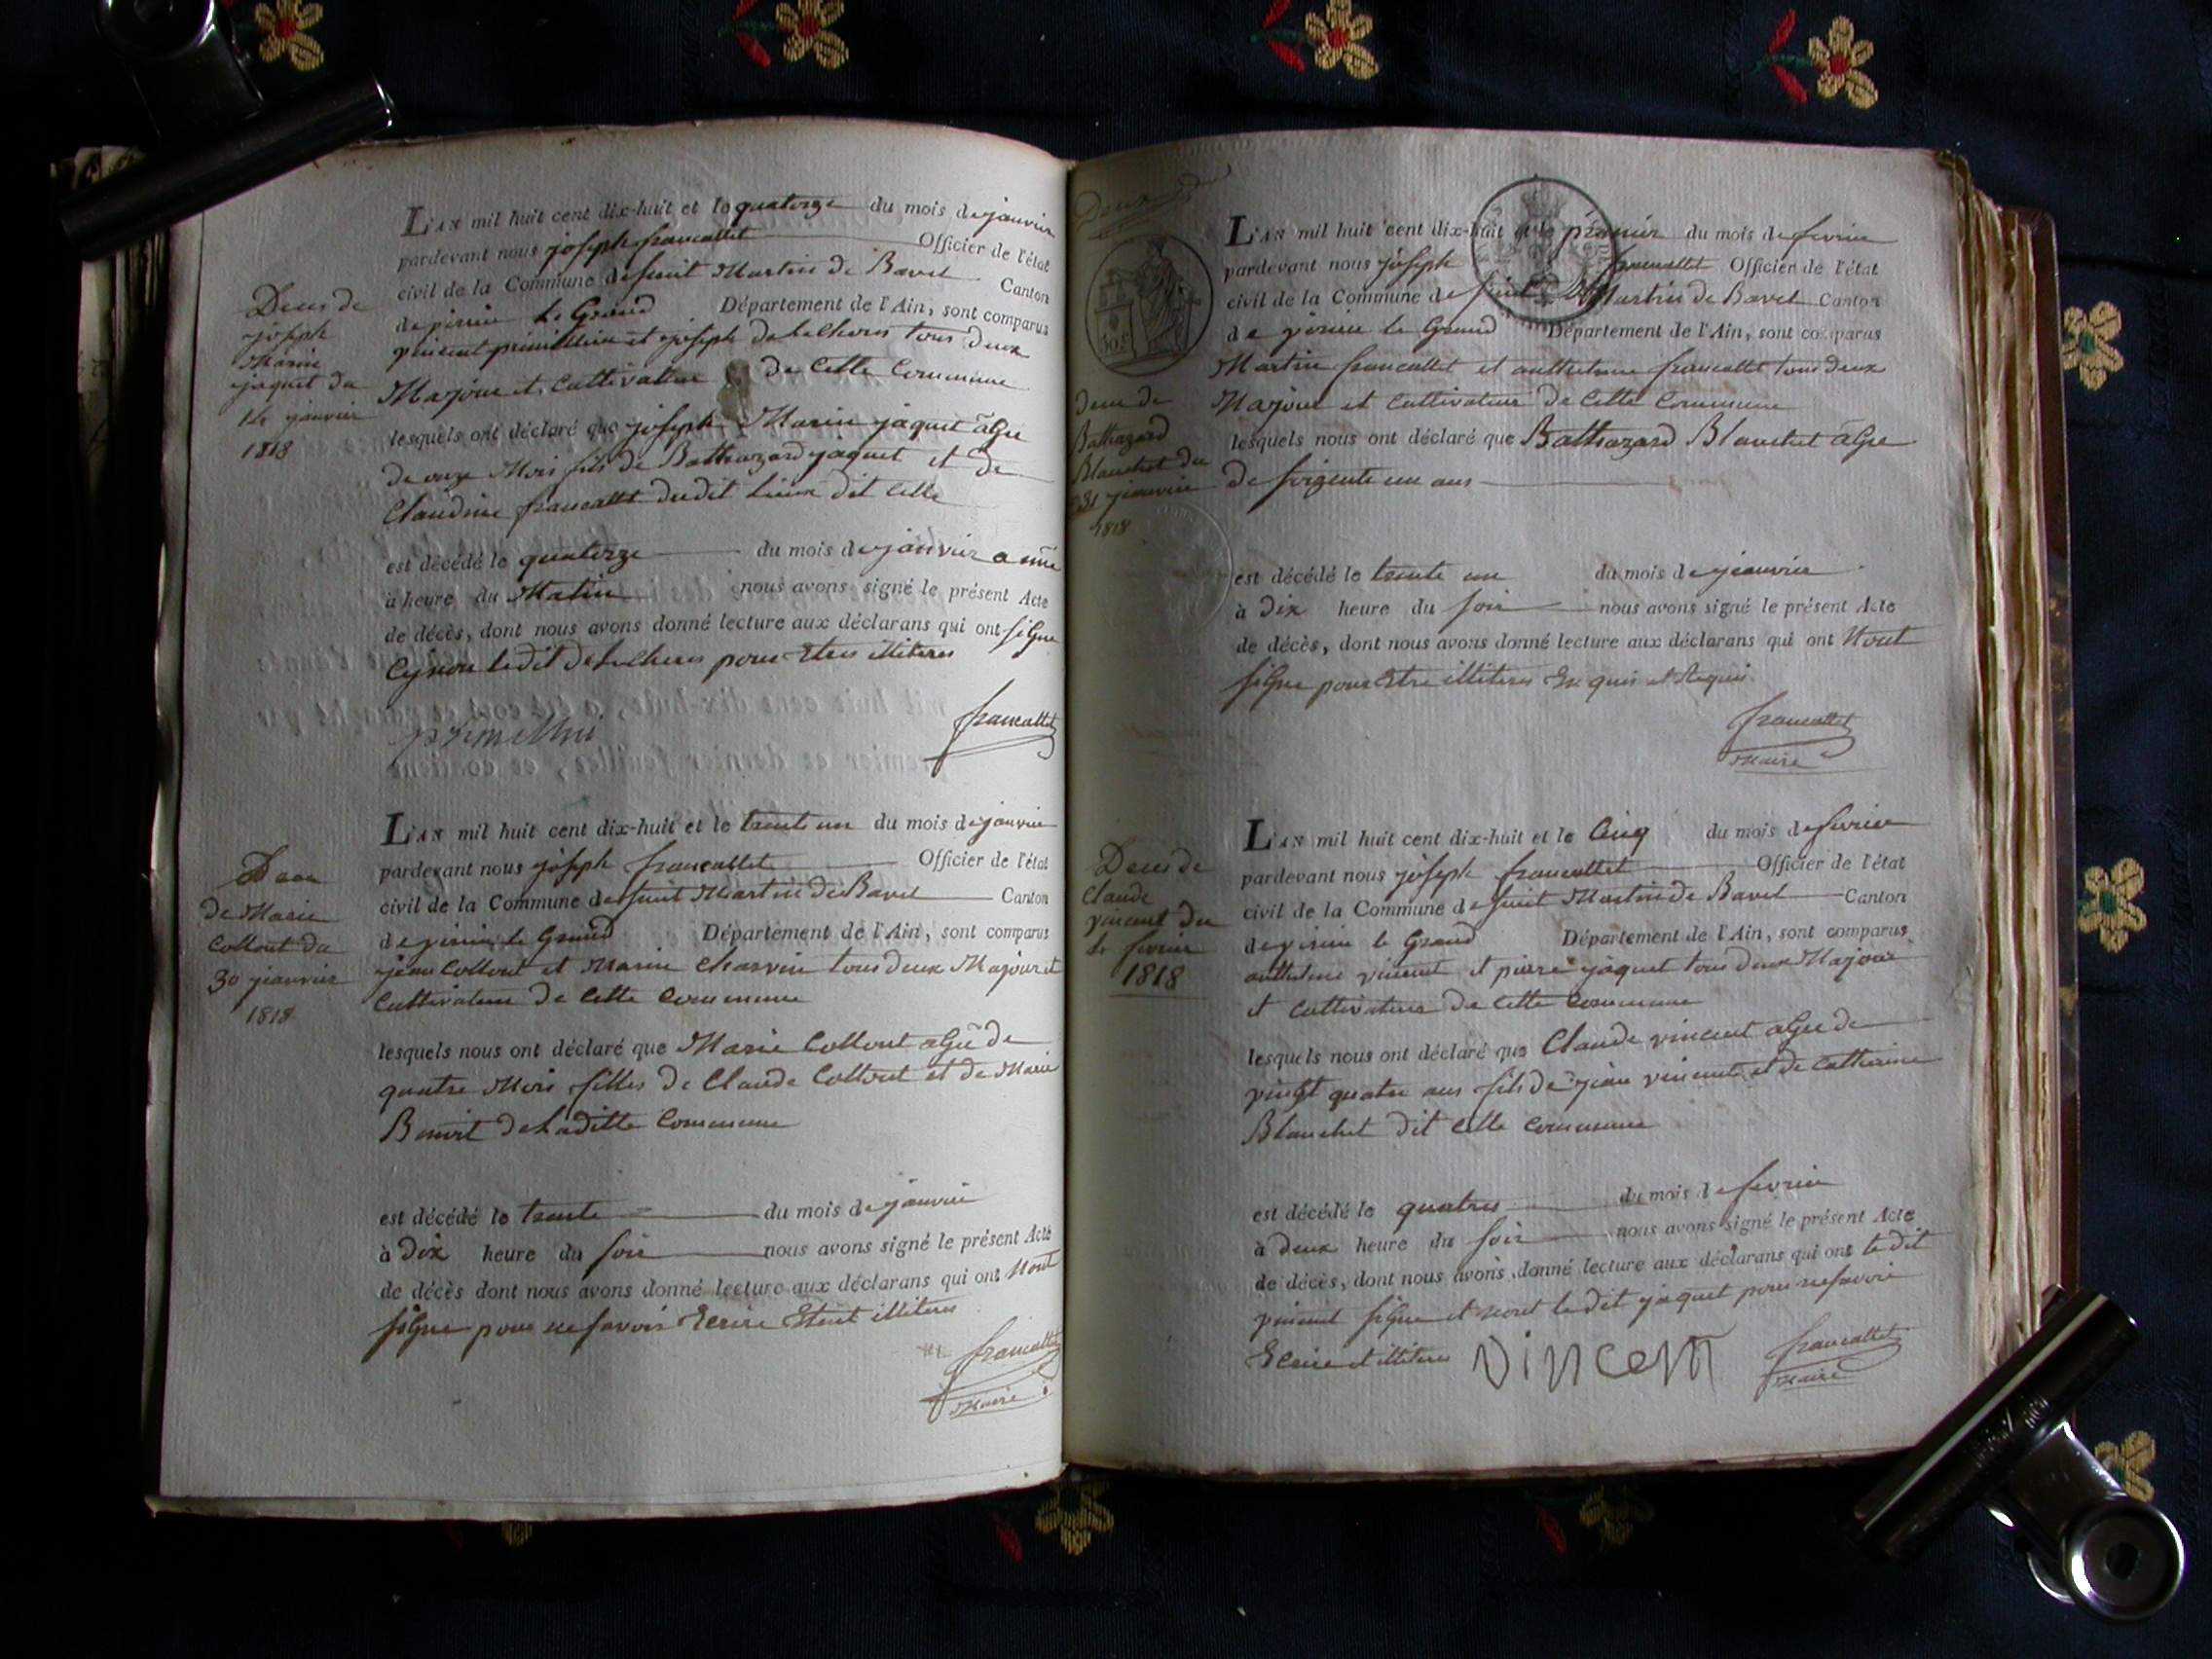 L'AN mil huit cent dix-huit et le quatorze du mois de janvier
pardevant nous joseph francallet Officier de l'état
civil de la Commune de saint Martin de Bavel Canton
de virieu le Grand Département de l'Ain, sont comparus
vincent et joseph tous deux
Majour et Cultivateur de Cette Commune
lesquels ont déclaré que joseph Marin jaquet âGée
de onze Mois fils de Balthazard jaquet et de
Claudine francallet dudit Lieux dit Cette
est décédé le quatorze du mois de janvier a une
à heure du Matin nous avons signé le présent Acte
de décès, dont nous avons donné lecture aux déclarans qui ont siGne
pour Etres illiteres
francallet
Deces de
joseph
Marin
jaquet du
14 janvier
1818
L'AN mil huit cent dix-huit et le trente un du mois de janvier
pardevant nous joseph francallet Officier de l'état
civil de la Commune de saint Martin de Bavel Canton
de virieu le Grand Département de l'Ain, sont comparus
jean Collout et Marin Charvin tous deux Majour et
Cultivateur de Cette Commune
lesquels nous ont déclaré que Marie Collout aGée de
quatre Mois filles de Claude Collout et de Marie
Benoit de Laditte Commune
est décédé le trente du mois de janvier
à Dix heure du soir nous avons signé le présent Acte
de décès dont nous avons donné lecture aux déclarans qui ont Nont
siGne pour ne savoir Ecrire Etent illiteres
francallet
Maire
de Marie
Collout du
30 jeanvier
1818
Deux
30.c
L'AN mil huit cent dix-huit et le premier du mois de fevrier
pardevant nous joseph francallet Officier de l'état
civil de la Commune de saint Martin de Bavel Canton
de virieu le Grand Département de l'Ain, sont comparus
Martin francallet et anthelme francallet tous deux
Majour et Cultivateur de Cette Commune
lesquels nous ont déclaré que Balthazard Blanchet âGée
de soigente un ans
est décédé le trente un du mois de jeanvier
à Dix heure du soir nous avons signé le présent Acte
de décès, dont nous avons donné lecture aux déclarans qui ont Nont
siGne pour Etre illiteres En quis et Requis
francallet
Maire
Deces de
Balthazard
Blanchet du
31 jeanvier
1818
L'AN mil huit cent dix-huit et le Cinq du mois de fevrier
pardevant nous joseph francallet Officier de l'état
civil de la Commune de saint Martin de Bavel Canton
de virieu le Grand Département de l'Ain, sont comparus
anthelme vincent et pierre jaquet tous deux Majour
et Cultivateur de Cette Commune
lesquels nous ont déclaré que Claude vincent aGée de
vingt quatre ans fils de jean vincent et de Catherine
Blanchet dit Cette Commune
est décédé le quatres du mois de fevrier
à deux heure du soir nous avons signé le présent Acte
de décès, dont nous avons donné lecture aux déclarans qui ont le dit
vincent siGne et nont le dit jaquet pour ne savoir
Ecrire et illiteres vincent francallet
Maire
Deces de
Claude
vincent du
4 fevrier
1818